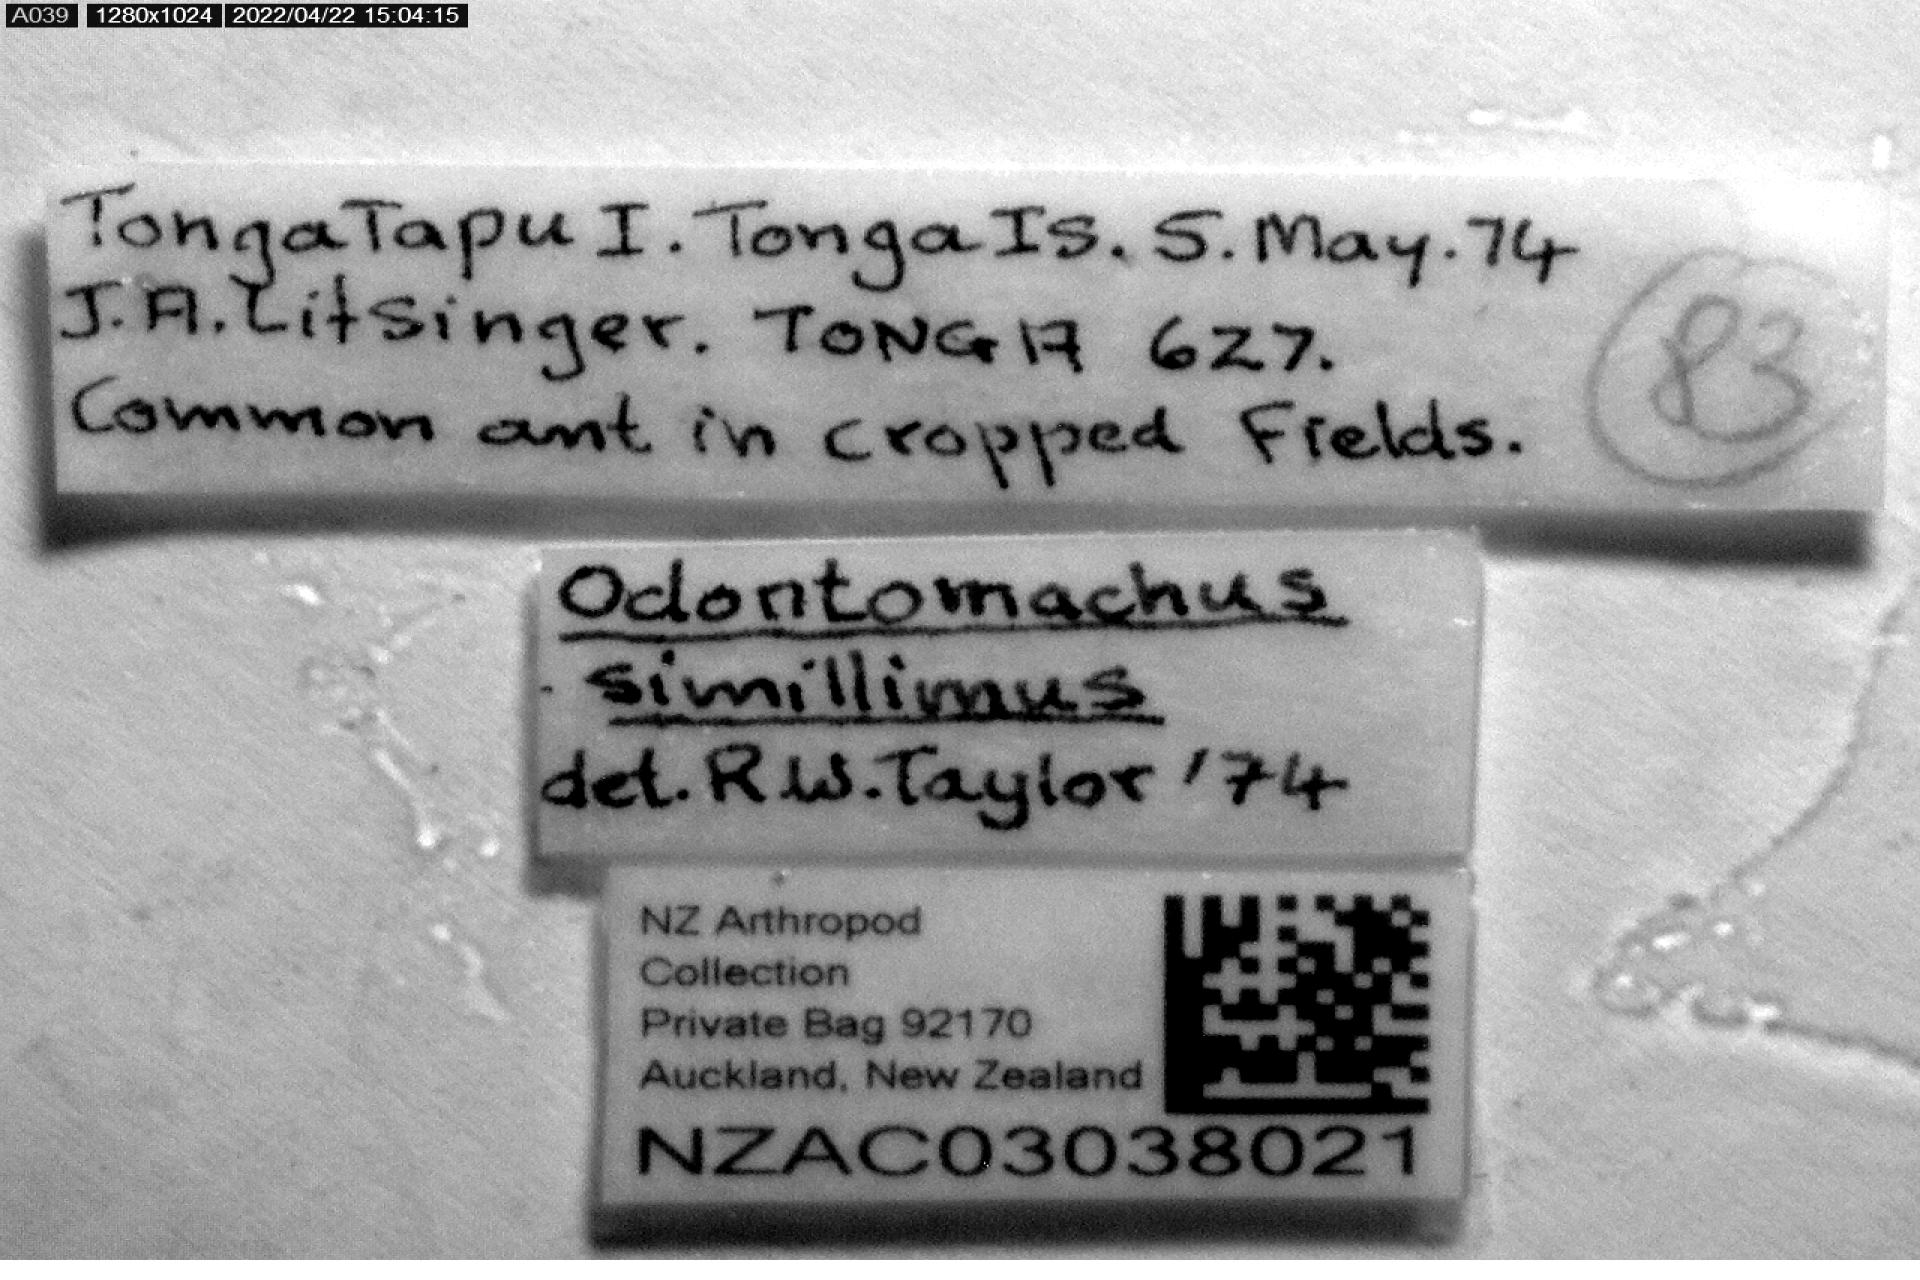 A039 1280x1024 2022/04/22 15:04:15
TongaTapu I. Tonga Is. 5. May. 74
J.A. Litsinger. TONGA 627.
Common ant in cropped Fields.
83
Odontomachus
simillimus
det. R.W. Taylor '74
NZ Arthropod
Collection
Private Bag 92170
Auckland, New Zealand
NZAC03038021